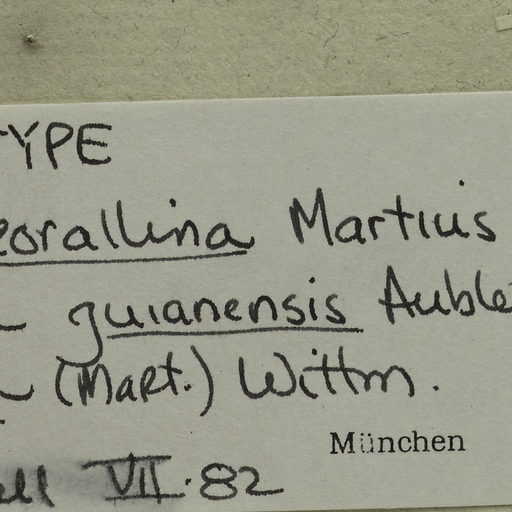 TYPE
corallina Martius
guianensis Auble
(Mart.) Wittm.
München
ell VII.82